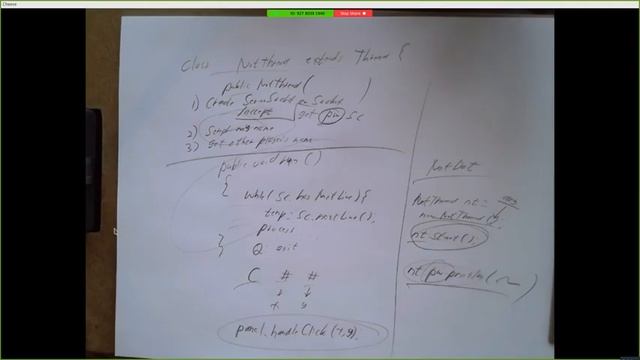 Class NetThread extends Thread {
public NetThread( )
1) Create ServerSocket or Socket
Accept get pw Sc
2) Send my name
3) Get other players name
public void run ()
{
while( Sc.hasNextLine){
temp = Sc.nextLine();
process
}
Q: exit
C # #
x y
panel.handleClick(x,y);
NetDot
NetThread nt =
new NetThread();
nt.start();
nt.pw.println( )